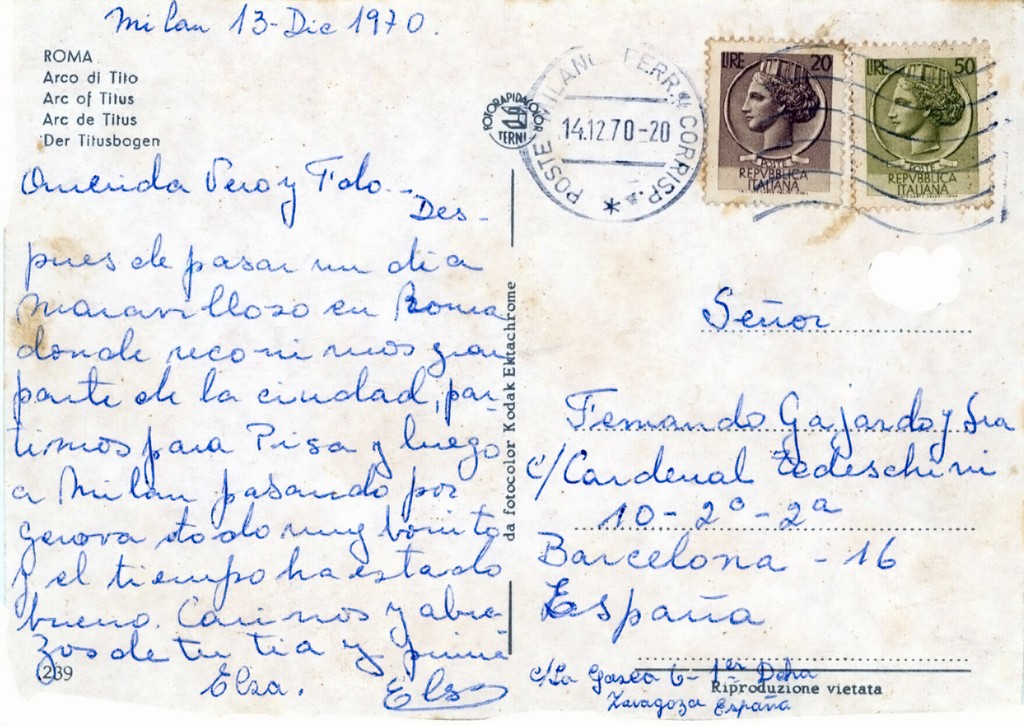 Milan 13-Dic 1970.
ROMA
Arco di Tito
Arc of Titus
Arc de Titus
Der Titusbogen
FOTORAPIDACOLOR
TERNI
POSTE MILANO FERR. CORRISP.
14.12.70-20
LIRE 20
POSTE
REPVBBLICA
ITALIANA
LIRE 50
POSTE
REPVBBLICA
ITALIANA
Querida Vero y Folo.-
Des-
pues de pasar un dia
maravilloso en Roma
donde recorrimos gran
parte de la ciudad, par-
timos para Pisa y luego
a Milan pasando por
Genova todo muy bonito
y el tiempo ha estado
bueno. Cariños y abra-
zos de tu tia y
Elsa.
Elsa
239
da fotocolor Kodak Ektachrome
Señor
Fernando Gajardo y Sra
c/Cardenal Tedeschini
10-2º-2a
Barcelona - 16
España
c/La Gasca 6- 1er Dcha
Zaragoza España
Riproduzione vietata